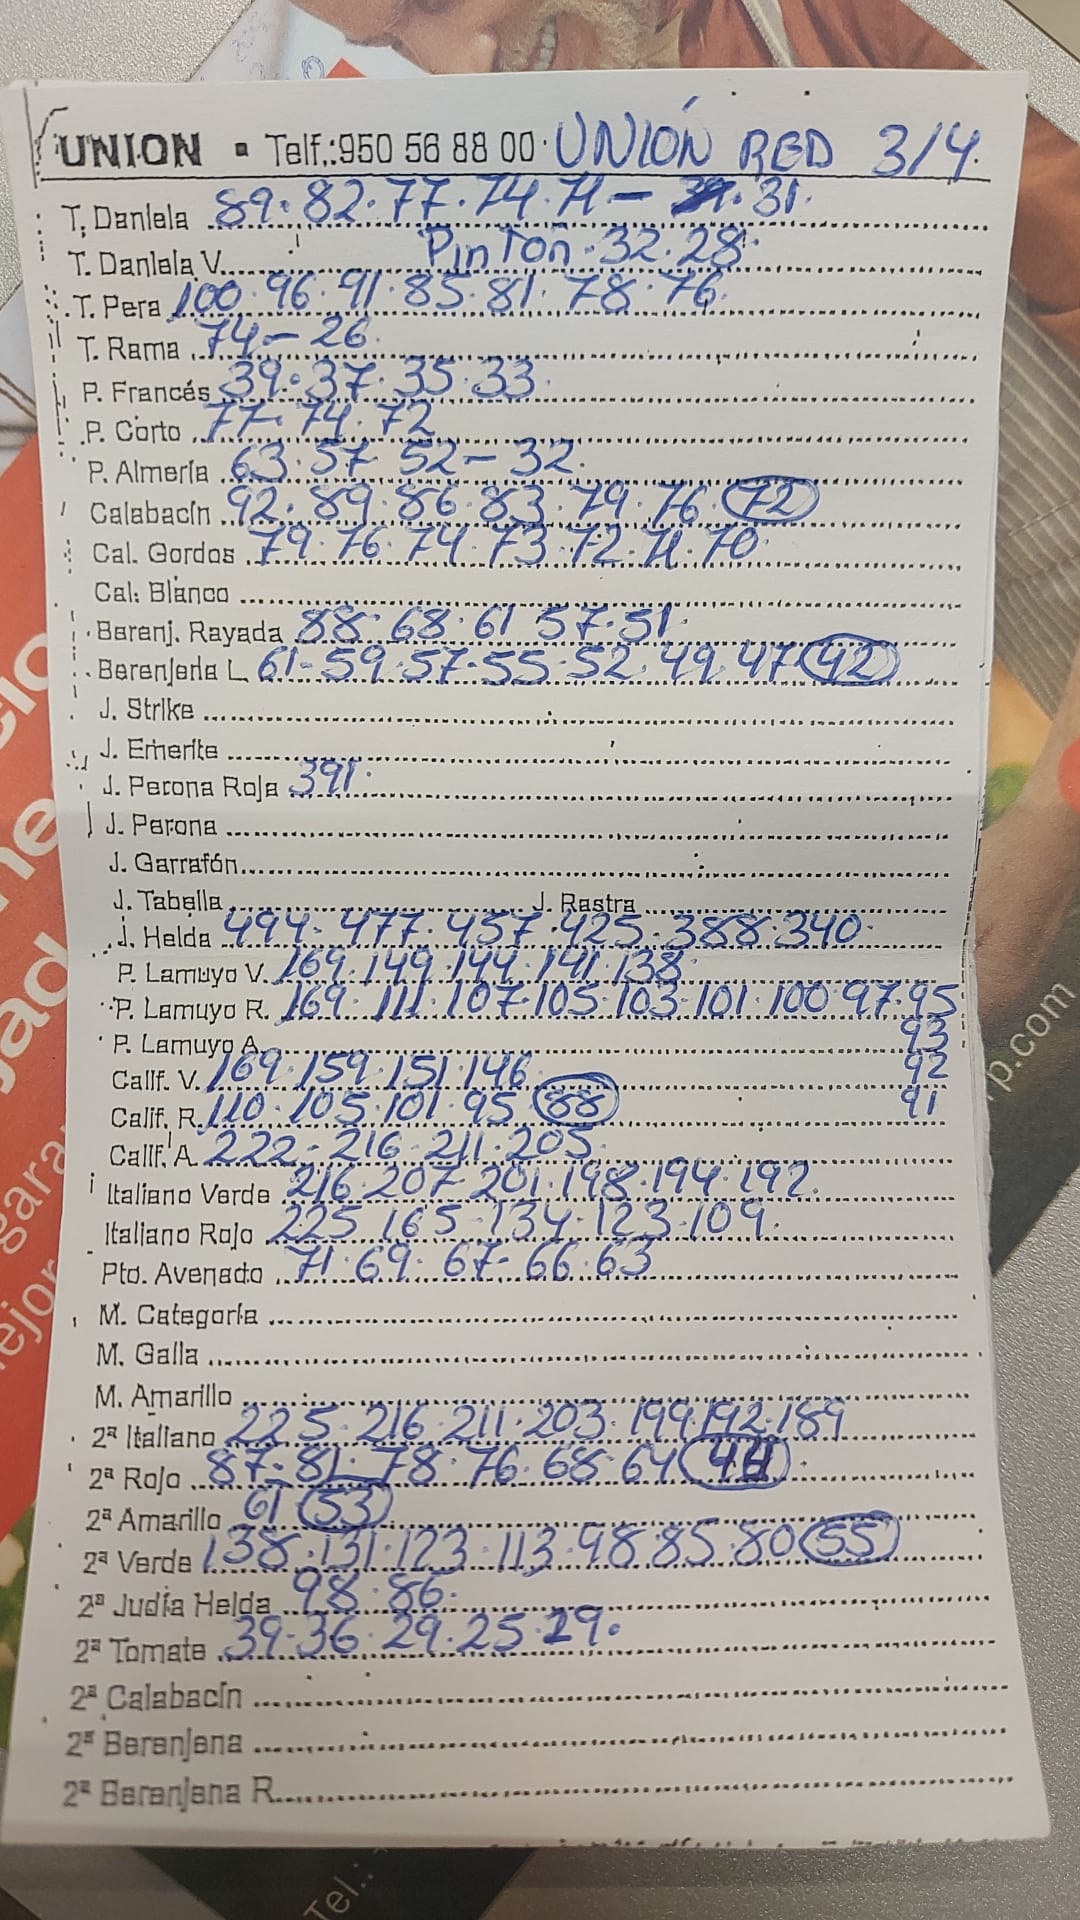 UNION ▪ Telf.:950 56 88 00 · UNIÓN RED 3/4.
T. Daniela 89. 82. 77. 74. 71 - 31.
T. Daniela V. Pinton. 32. 28.
T. Pera 100. 96. 91. 85. 81. 78. 76.
T. Rama 74 - 26.
P. Francés 39. 37. 35. 33.
P. Corto 77. 74. 72
P. Almería 63. 57. 52 - 32.
Calabacín 92. 89. 86. 83. 79. 76. 72
Cal. Gordos 79. 76. 74. 73. 72. 71. 70.
Cal. Blanco
Berenj. Rayada 88. 68. 61 57. 51.
Berenjena L. 61. 59. 57. 55. 52. 49. 47 42
J. Strike
J. Emerite
J. Perona Roja 391.
J. Perona
J. Garrafón
J. Tabella J. Rastra
J. Helda 494. 477. 457. 425. 388. 340.
P. Lamuyo V. 169. 149. 144. 141. 138.
P. Lamuyo R. 169. 111. 107. 105. 103. 101. 100. 97. 95
P. Lamuyo A. 93
Calif. V. 169. 159. 151. 146. 92
Calif. R. 110. 105. 101. 95 88 91
Calif. A. 222. 216. 211. 205.
Italiano Verde 216. 207. 201. 198. 194. 192.
Italiano Rojo 225. 165. 134. 123. 109.
Pto. Avenado 71. 69. 67. 66. 63
M. Categoría
M. Galia
M. Amarillo
2ª Italiano 225. 216. 211. 203. 199. 192. 189
2ª Rojo 87. 81. 78. 76. 68. 64
2ª Amarillo 61 53
2ª Verde 138. 131. 123. 113. 98. 85. 80 55
2ª Judía Helda 98. 86.
2ª Tomate 39. 36. 29. 25.
2ª Calabacín
2ª Berenjena
2ª Berenjena R.
p.com
Tel.: